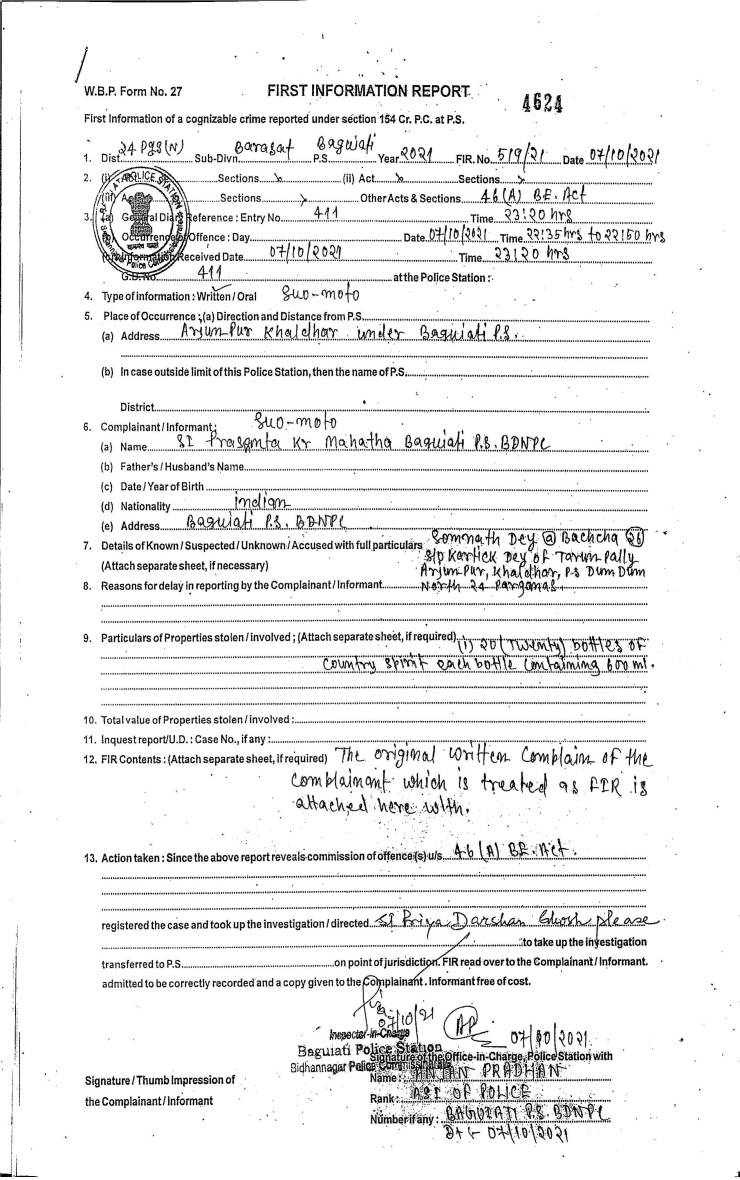 W.B.P. Form No. 27
FIRST INFORMATION REPORT
4624
First Information of a cognizable crime reported under section 154 Cr. P.C. at P.S.
1. Dist. 24 PGS(N) Sub-Divn. Barasat P.S. Baguiati Year 2021 FIR. No. 519/21 Date 07/10/2021
2. (i) Sections (ii) Act Sections
Sections Other Acts & Sections 46(A) BE. Act
3. (a) General Diary Reference : Entry No. 411 Time 23:20 hrs
Occurrence of Offence : Day Date 07/10/2021 Time 22:35 hrs to 22:50 hrs
Information Received Date 07/10/2021 Time 23:20 hrs
G.D. No. 411 at the Police Station :
4. Type of information : Written / Oral Suo-moto
5. Place of Occurrence ; (a) Direction and Distance from P.S.
(a) Address Arjunpur Khaldhar under Baguiati P.S.
(b) In case outside limit of this Police Station, then the name of P.S.
District
6. Complainant / Informant : Suo-moto
(a) Name SI Prasanta Kr Mahatha Baguiati P.S. BDNPC
(b) Father's / Husband's Name
(c) Date / Year of Birth
(d) Nationality Indian
(e) Address Baguiati P.S. BDNPC
7. Details of Known / Suspected / Unknown / Accused with full particulars Somnath Dey @ Bachcha (26)
S/o Kartick Dey of Tarun pally
(Attach separate sheet, if necessary) Arjunpur, Khaldhar, P.S Dum Dum
8. Reasons for delay in reporting by the Complainant / Informant North 24 Parganas.
9. Particulars of Properties stolen / involved ; (Attach separate sheet, if required) (i) 20 (Twenty) bottles of
Country spirit each bottle containing 600 ml.
10. Total value of Properties stolen / involved :
11. Inquest report / U.D. : Case No., if any :
12. FIR Contents : (Attach separate sheet, if required) The original written Complain of the
Complainant which is treated as FIR is
attached here with.
13. Action taken : Since the above report reveals commission of offence(s) u/s 46 (A) BE. Act.
registered the case and took up the investigation / directed SI Priya Darshan Ghosh please
to take up the investigation
transferred to P.S. on point of jurisdiction. FIR read over to the Complainant / Informant.
admitted to be correctly recorded and a copy given to the Complainant. Informant free of cost.
07/10/21
07/10/2021
Inspector-in-Charge
Baguiati Police Station
Bidhannagar Police Commissionerate
Signature of the Office-in-Charge, Police Station with
Signature / Thumb Impression of
the Complainant / Informant
Name : PRADHAN
Rank : ASI OF POLICE
Number if any : BAGUIATI P.S. BDNPC
Dt :- 07/10/2021